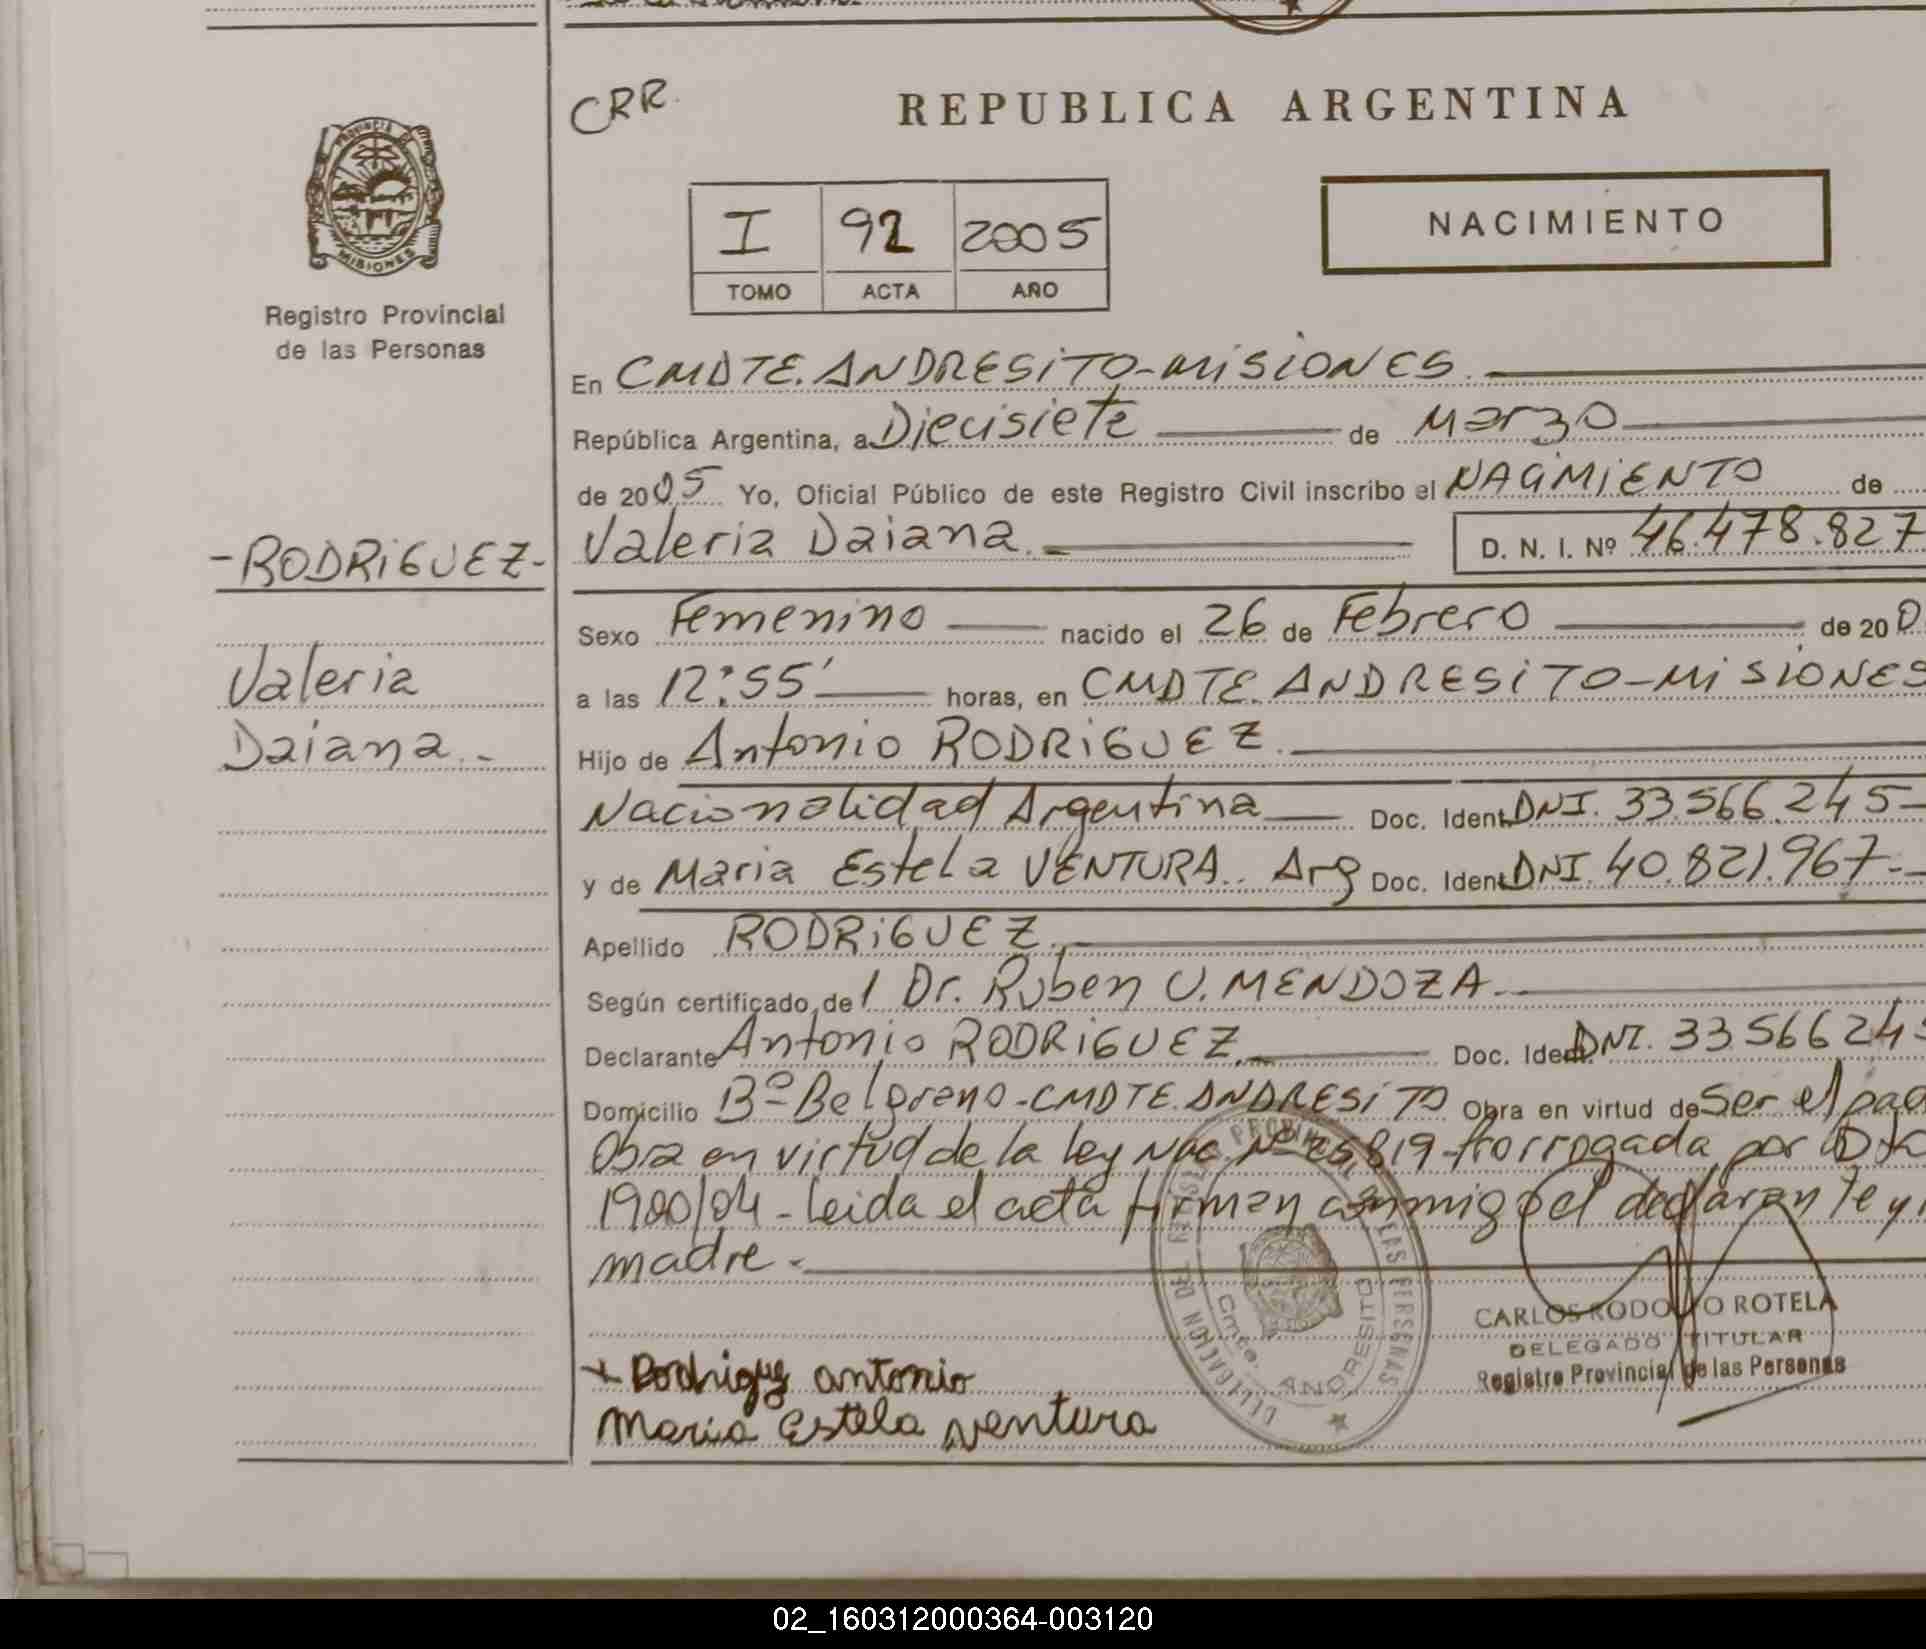 CRR.
REPUBLICA ARGENTINA
PROVINCIA DE
MISIONES
I 92 2005
TOMO ACTA AÑO
NACIMIENTO
Registro Provincial
de las Personas
En CMDTE. ANDRESiTO-MiSiONES.
República Argentina, a Diecisiete de Marzo
de 2005 Yo, Oficial Público de este Registro Civil inscribo el NACiMiENTO de
-RODRiGUEZ- Valeria Daiana. D. N. I. Nº 46.478.827
Sexo Femenino nacido el 26 de Febrero de 200
Valeria
a las 12:55' horas, en CMDTE. ANDRESiTO-MiSiONES
Daiana.-
Hijo de Antonio RODRiGUEZ.
Nacionalidad Argentina Doc. Ident. DNI. 33.566.245-
y de Maria Estela VENTURA.. Arg Doc. Ident. DNI. 40.821.967-
Apellido RODRiGUEZ.
Según certificado de l Dr. Ruben U. MENDOZA.
Declarante Antonio RODRiGUEZ. Doc. Ident. DNI. 33566245
Domicilio Bº Belgrano-CMDTE. ANDRESiTO Obra en virtud de Ser el pad
Obra en virtud de la ley Nac. Nº 25819-Prorrogada por Dto
1900/04-Leida el acta firman conmigo el declarante y
madre.-
CARLOS RODOLFO ROTELA
DELEGADO TITULAR
Registro Provincial de las Personas
DELEGACION DEL REGISTRO PROVINCIAL DE LAS PERSONAS
Cmte. ANDRESITO
x Rodriguez antonio
Maria Estela Ventura
02_160312000364-003120